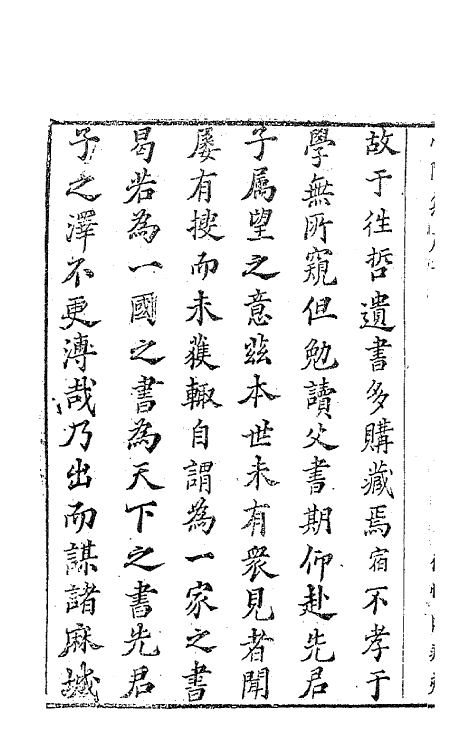 故于徃哲遺書多購藏焉宿不孝于
學無所窺但勉讀父書期仰赴先君
子属望之意茲本世未有衆見者聞
屢有搜而未獲輙自謂為一家之書
曷若為一國之書為天下之書先君
子之澤不更溥哉乃出而謀諸麻城